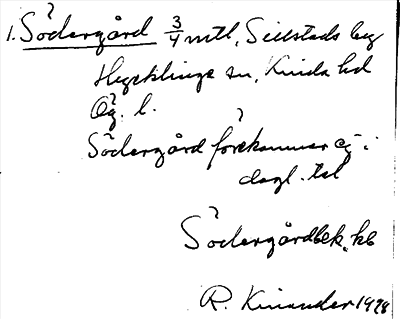 1. Södergård 3/4 mtl, Sillstads by
Hycklinge sn, Kinda hd
Ög. l.
Södergård förekommer ej i
dagl. tal
Södergårdbek. hb
R. Kinander 1928